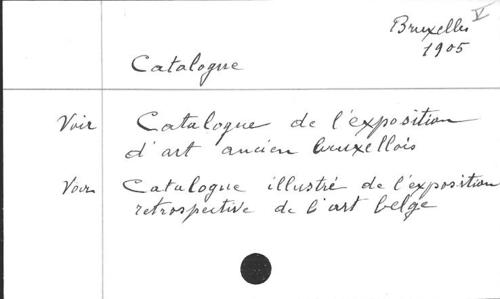 Bruxelles V
1905
Catalogue
Voir Catalogue de l'exposition
d'art ancien bruxellois
Voir Catalogue illustré de l'exposition
retrospective de l'art belge